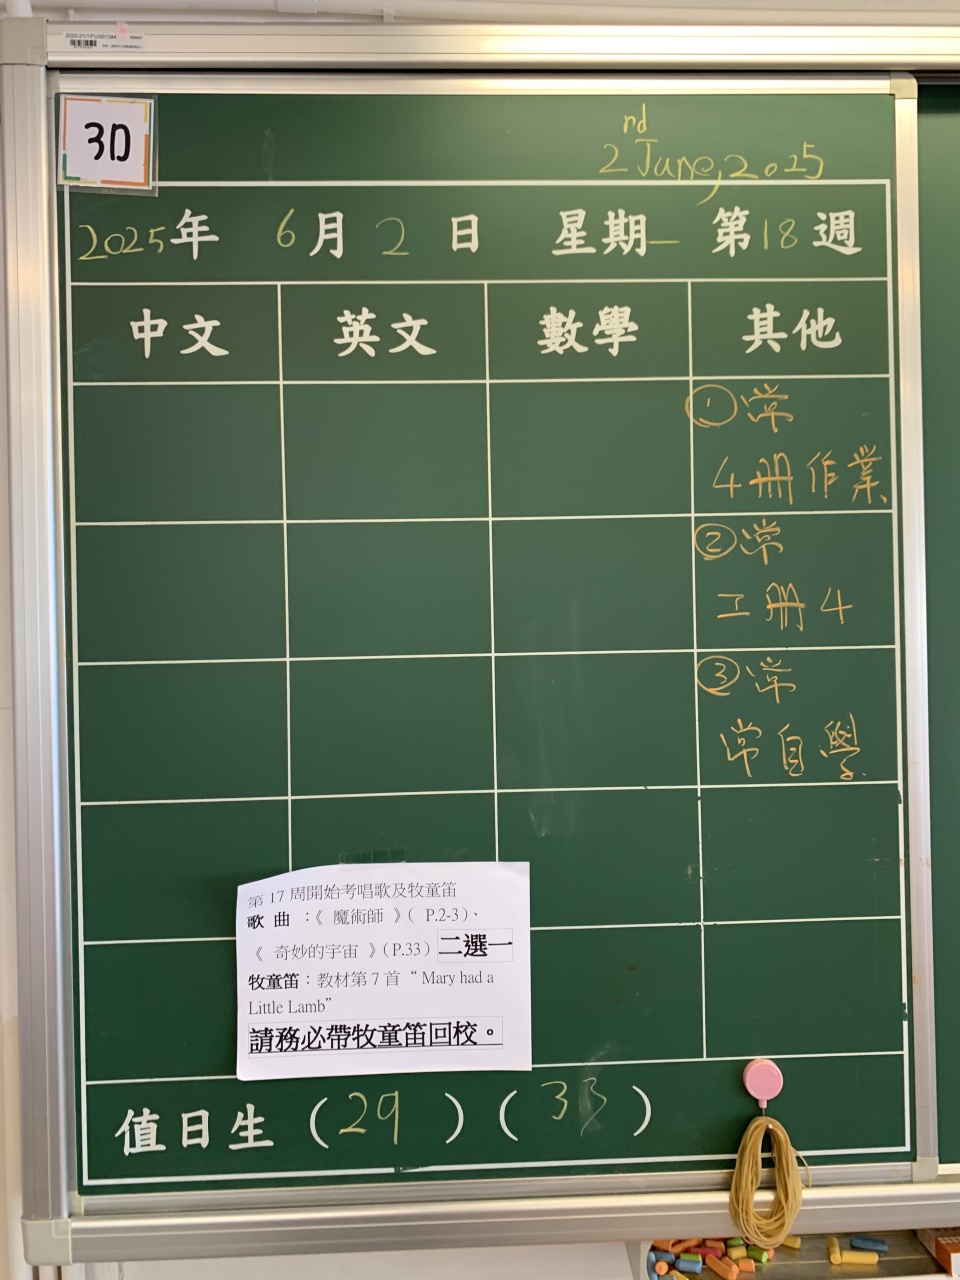 2020-21/1/FU/001344
3D
2nd June, 2025
2025年 6月 2日 星期一 第18週
中文 英文 數學 其他
①常
4冊作業
②常
工册4
③常
常自學
第 17 周開始考唱歌及牧童笛
歌 曲 :《 魔術師 》( P.2-3)、
《 奇妙的宇宙 》(P.33) 二選一
牧童笛：教材第 7 首 “ Mary had a
Little Lamb”
請務必帶牧童笛回校。
值日生 (29) (33)